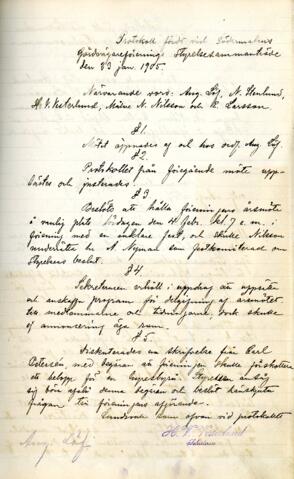 Protokoll fördt vid Södermalms
Gårdvägareförenings Styrelsesammanträde
den 23 jan. 1905.
Närvarande voro: Aug. Löf, N. Stenlund,
H. V. Vesterlund, Måns N. Nilsson och K. Larsson.
§ 1.
Mötet öppnades af och hos ordf. Aug. Löf.
§ 2.
Protokollet från föregående möte upp-
lästes och justerades.
§ 3.
Beslöts att hålla föreningens årsmöte
i vanlig plats lördagen den 4 feb. kl. 7 e.m. i
förening med en enklare fest och skulle Nilsson
underrätta N. Nyman som festkommiterad om
Styrelsens beslut.
§ 4.
Sekreteraren erhöll i uppdrag att uppsätta
och program för af årsmötet
medlemmarne och tidningarne, dock skulle
ej annonsering äga rum.
§ 5.
Diskuterades en skrifvelse från Carl
Peterson, med begäran att föreningen skulle
ett belopp för en Styrelsen ansåg
sig böra denna begäran och beslöt hänskjuta
frågan till föreningens afgörande.
Sundsvall som ofvan vid protokollet
H. V. Vesterlund
Aug. Löf